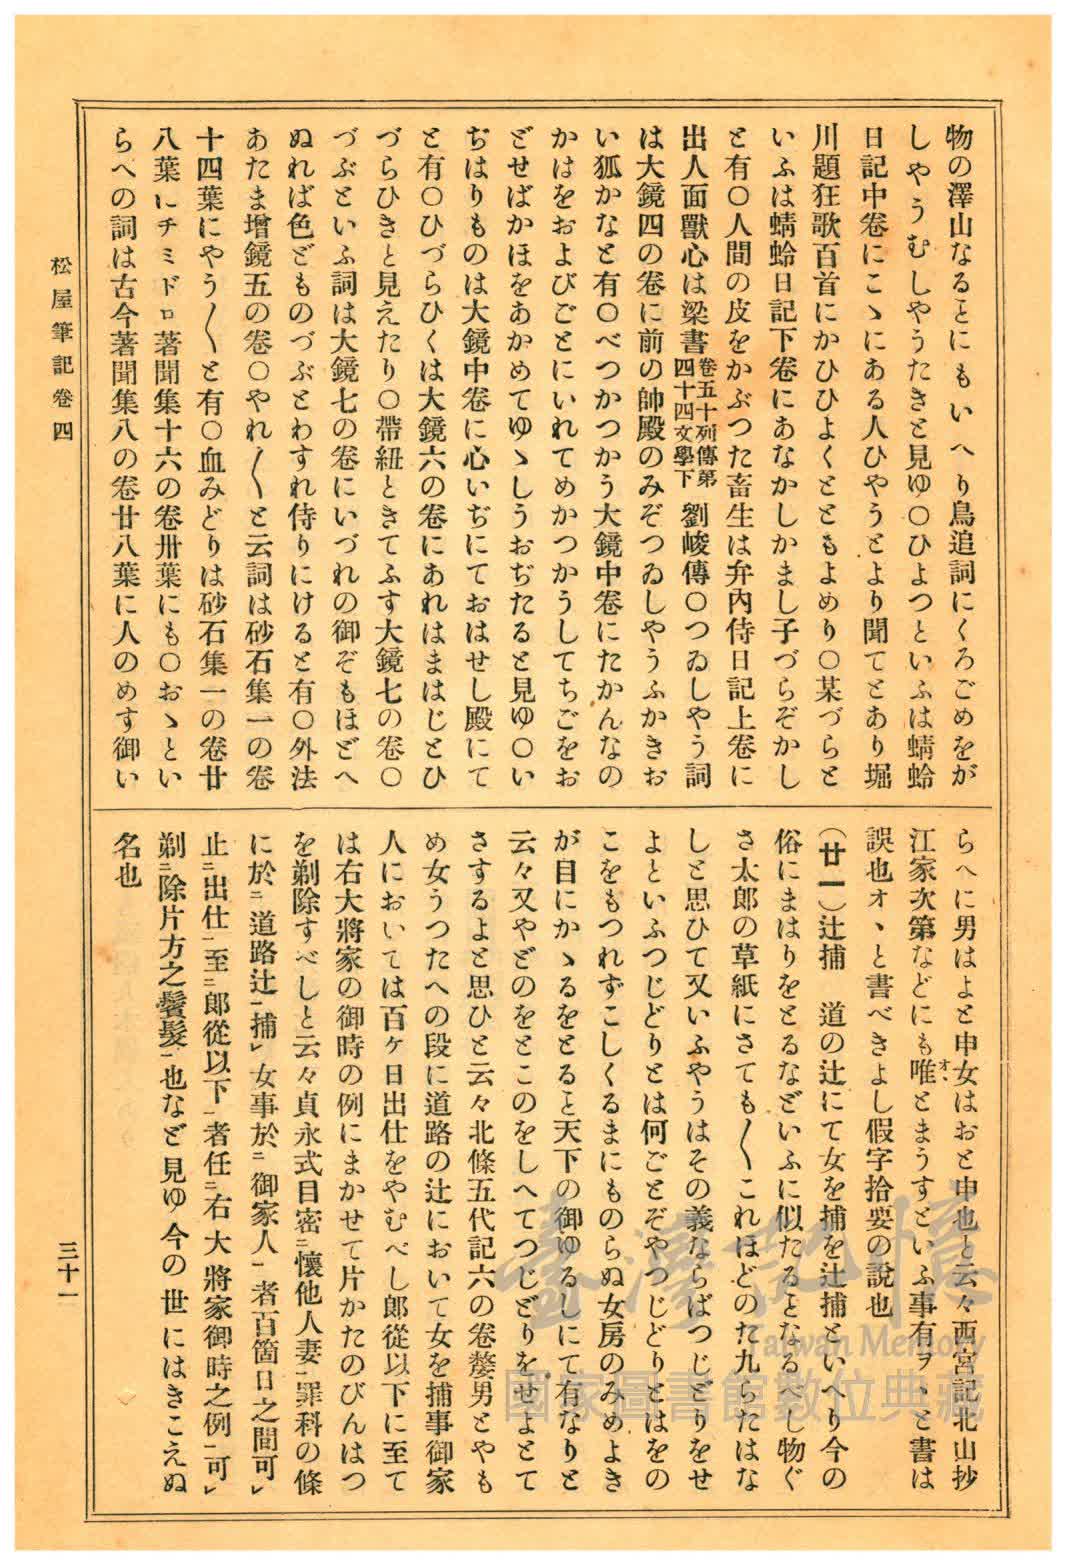 物の澤山なるとにもいへり鳥追詞にくろごめをが
しやうむしやうたきと見ゆ〇ひよつといふは蜻蛉
日記中卷にこゝにある人ひやうとより聞てとあり堀
川題狂歌百首にかひひよくとともよめり〇某づらと
いふは蜻蛉日記下卷にあなかしかまし子づらぞかし
と有〇人間の皮をかぶつた畜生は弁內侍日記上卷に
出人面獸心は梁書卷五十列傳第四十四文學下劉峻傳〇つゐしやう詞
は大鏡四の卷に前の帥殿のみぞつゐしやうふかきお
い狐かなと有〇べつかつかう大鏡中卷にたかんなの
かはをおよびごとにいれてめかつかうしてちごをお
どせばかほをあかめてゆゝしうおぢたると見ゆ〇い
ぢはりものは大鏡中卷に心いぢにておはせし殿にて
と有〇ひづらひくは大鏡六の卷にあれはまはじとひ
づらひきと見えたり〇帶紐ときてふす大鏡七の卷〇
づぶといふ詞は大鏡七の卷にいづれの御ぞもほどへ
ぬれば色どものづぶとわすれ侍りにけると有〇外法
あたま增鏡五の卷〇やれ〳〵と云詞は砂石集一の卷
十四葉にやう〳〵と有〇血みどりは砂石集一の卷廿
八葉にチミドロ著聞集十六の卷卅葉にも〇おゝとい
らへの詞は古今著聞集八の卷廿八葉に人のめす御い
らへに男はよと申女はおと申也と云々西宮記北山抄
江家次第などにも唯オヽとまうすといふ事有ヲヽと書は
誤也オヽと書べきよし假字拾要の說也
(廿一)辻捕　道の辻にて女を捕を辻捕といへり今の
俗にまはりをとるなどいふに似たるとなるべし物ぐ
さ太郎の草紙にさても〳〵これほどのた九らたはな
しと思ひて又いふやうはその義ならばつじどりをせ
よといふつじどりとは何ごとぞやつじどりとはをの
こをもつれずこしくるまにものらぬ女房のみめよき
が目にかゝるをとると天下の御ゆるしにて有なりと
云々又やどのをとこのをしへてつじどりをせよとて
さするよと思ひと云々北條五代記六の卷嫠男とやも
め女うつたへの段に道路の辻において女を捕事御家
人においては百ケ日出仕をやむべし郎從以下に至て
は右大將家の御時の例にまかせて片かたのびんはつ
を剃除すべしと云々貞永式目密ニ懷他人妻一罪科の條
に於ニ道路辻一捕レ女事於ニ御家人一者百箇日之間可レ
止ニ出仕一至ニ郎從以下一者任ニ右大將家御時之例一可レ
剃ニ除片方之鬢髮一也など見ゆ今の世にはきこえぬ
名也
松屋筆記卷四
三十一
臺灣記憶
Taiwan Memory
國家圖書館數位典藏